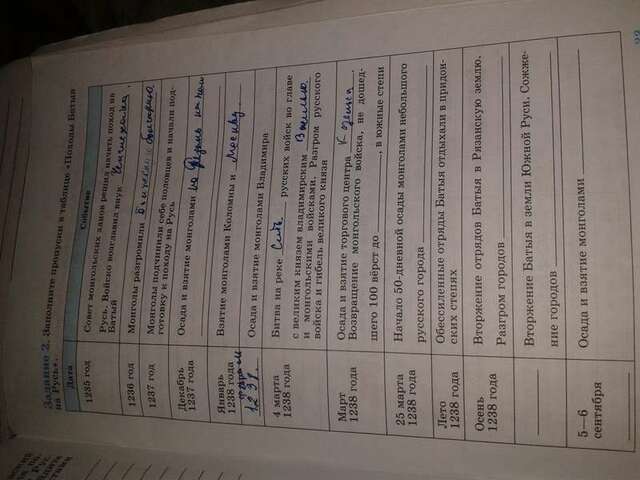 Задание 2. Заполните пропуски в таблице «Походы Батыя
на Русь».
Дата
Событие
1235 год
Совет монгольских ханов решил начать поход на
Русь. Войско возглавил внук Чингисхана.
Батый
1236 год
Монголы разгромили
1237 год
Монголы подчинили себе половцев и начали под-
готовку к походу на Русь
Декабрь
1237 года
Осада и взятие монголами
Январь
1238 года
Взятие монголами Коломны и Москву
Осада и взятие монголами Владимира
4 марта
1238 года
Битва на реке Сить русских войск во главе
с великим князем владимирским
и монгольскими войсками. Разгром русского
войска и гибель великого князя
Март
1238 года
Осада и взятие торгового центра
Возвращение монгольского войска, не дошед-
шего 100 вёрст до , в южные степи
25 марта
1238 года
Начало 50-дневной осады монголами небольшого
русского города
Лето
1238 года
Обессиленные отряды Батыя отдыхали в придон-
ских степях
Осень
1238 года
Вторжение отрядов Батыя в Рязанскую землю.
Разгром городов
Вторжение Батыя в земли Южной Руси. Сожже-
ние городов
5—6
сентября
Осада и взятие монголами